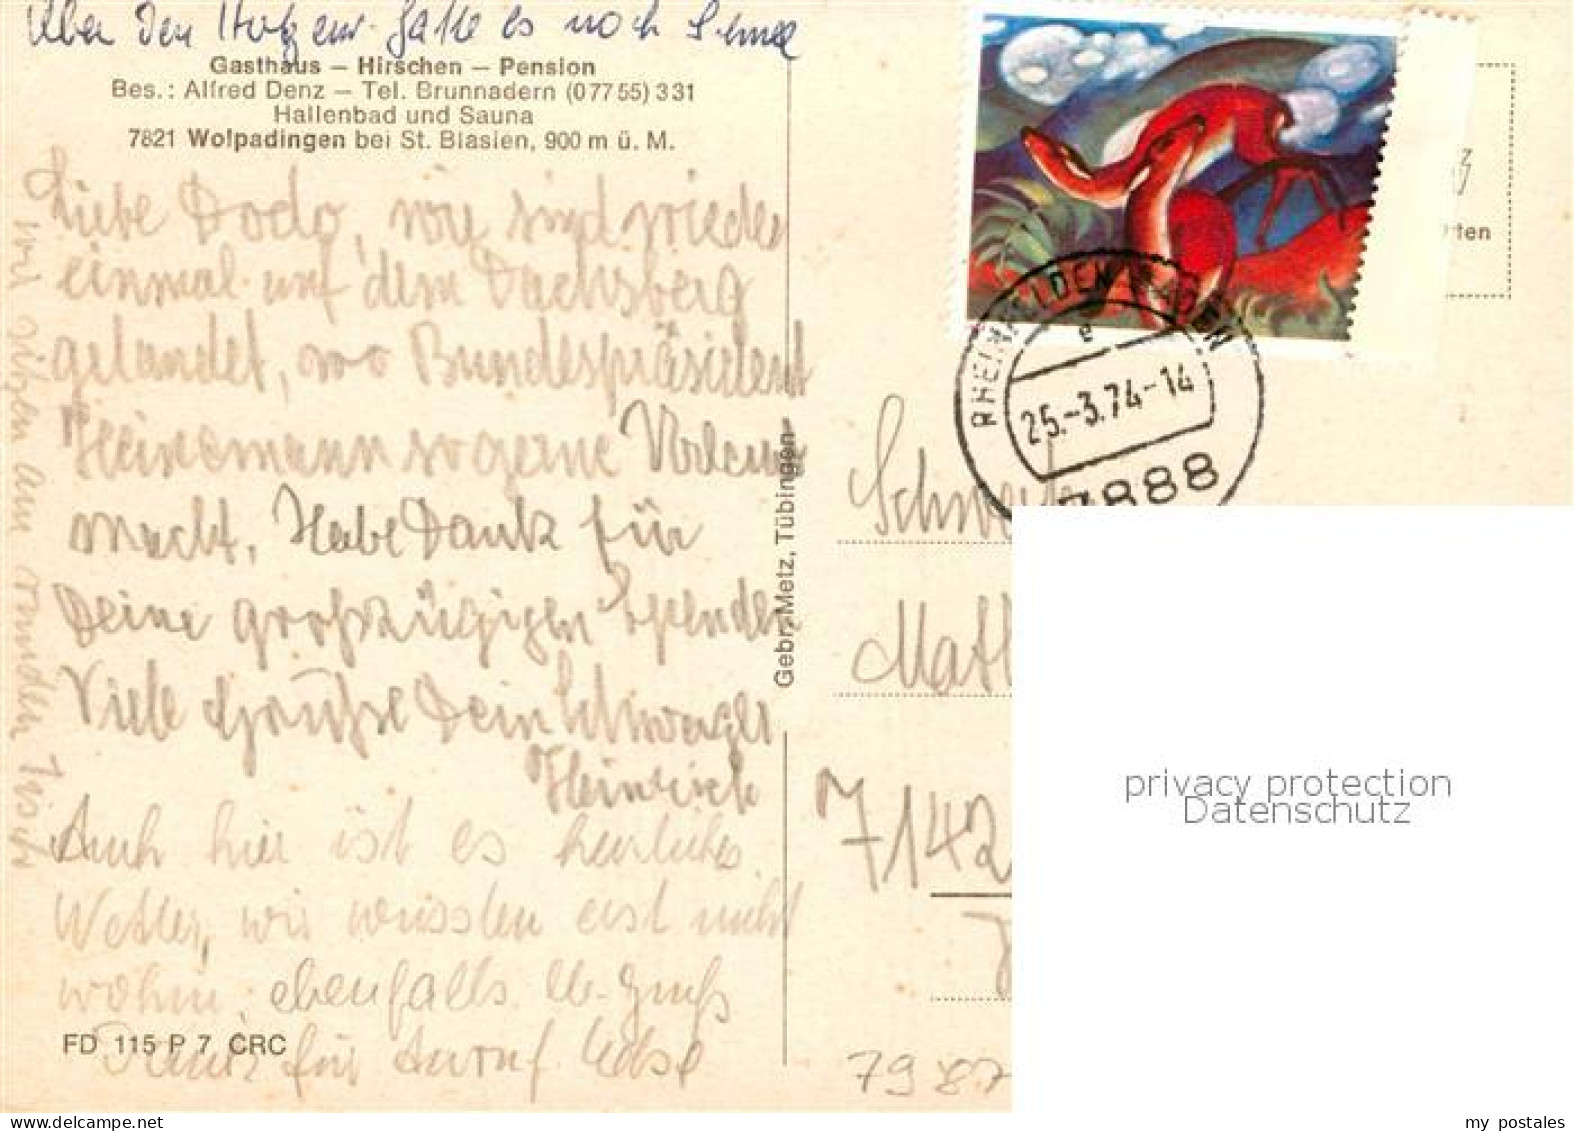 Über den Hotzenw. hatte es noch Schnee
Gasthaus – Hirschen – Pension
Bes.: Alfred Denz – Tel. Brunnadern (07755) 331
Hallenbad und Sauna
7821 Wolpadingen bei St. Blasien, 900 m ü. M.
Liebe Dodo, wir sind wieder
einmal auf dem Dachsberg
gelandet, wo Bundespräsident
Heinemann so gerne
macht. Habe Dank für
Deine großzügigen Spenden
Viele Grüße Dein Schwager
Heinrich
Auch hier ist es herrliches
Wetter, wir wussten erst nicht
wohin, ebenfalls lb. Gruß
Dank für Anruf
wir sitzen am runden Tisch
FD 115 P 7 CRC
Gebr. Metz, Tübingen
RHEINFELDEN (BADEN)
e
25.-3.74-14
7888
ten
7142
7987
privacy protection
Datenschutz
my postales